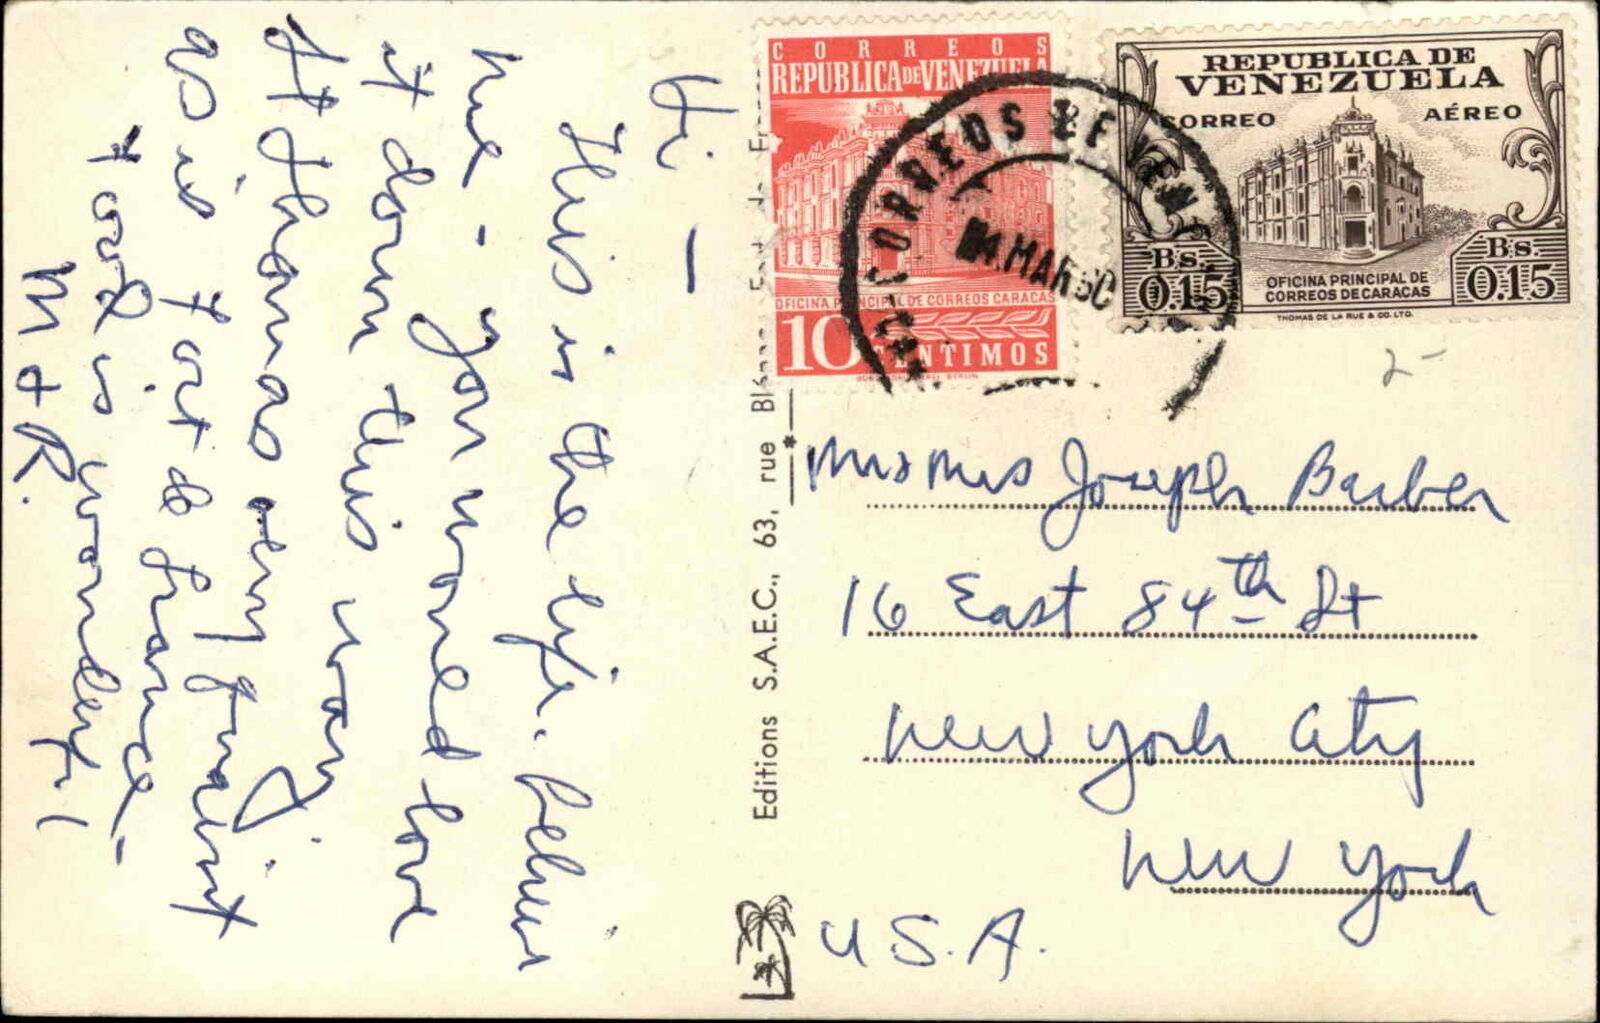 Hi —
This is the life. Believe
me - you would love
it down this way.
St Thomas very quaint
as is Fort de France -
Food is wonderful
M & R.
Editions S.A.E.C., 63, rue
CORREOS
REPUBLICA DE VENEZUELA
OFICINA PRINCIPAL DE CORREOS CARACAS
10 CENTIMOS
CORREOS DE VEN
MAR
REPUBLICA DE
VENEZUELA
CORREO AÉREO
Bs. 0.15
OFICINA PRINCIPAL DE
CORREOS DE CARACAS
Bs. 0.15
THOMAS DE LA RUE & CO. LTD.
2-
Mr & Mrs Joseph Barber
16 East 84th St
New York City
New York
U.S.A.